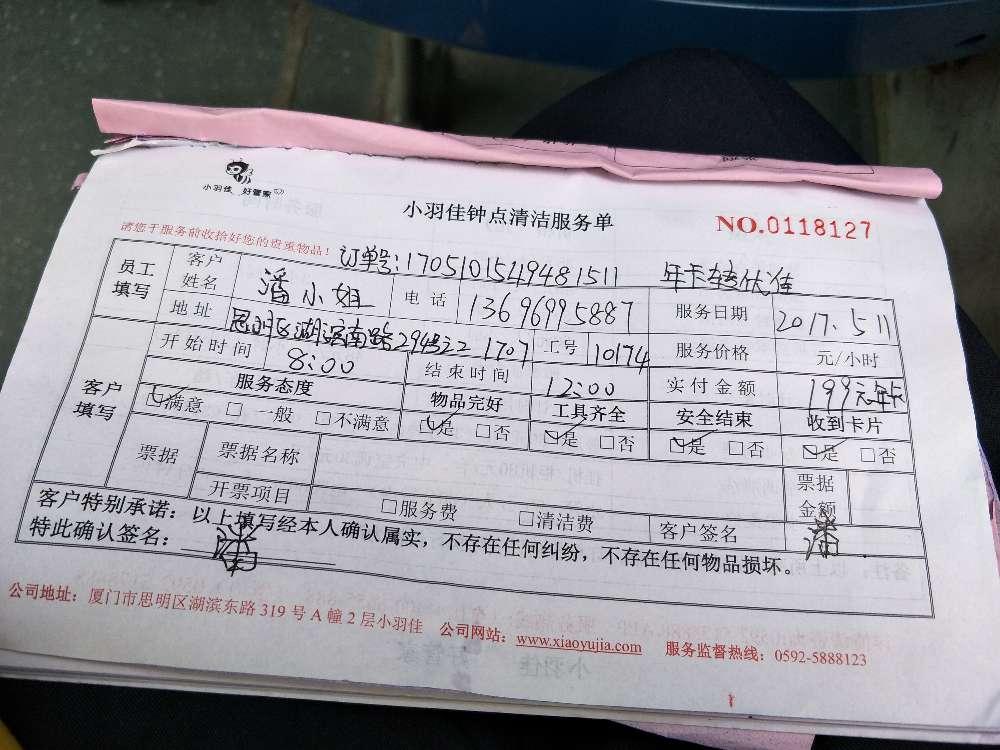 小羽佳 好管家
小羽佳钟点清洁服务单
NO.0118127
请您于服务前收拾好您的贵重物品！
订单号:1705101549481511 年卡转优佳
员工填写 客户姓名 潘小姐 电话 13696995887 服务日期 2017.5 11
地址 思明区湖滨南路294号之2 1707 工号 10174 服务价格 元/小时
开始时间 8:00 结束时间 12:00 实付金额 199元年卡
客户填写 服务态度 物品完好 工具齐全 安全结束 收到卡片
☑满意 □一般 □不满意 ☑是 □否 ☑是 □否 ☑是 □否 ☑是 □否
票据 票据名称 票据金额
开票项目 □服务费 □清洁费 客户签名 潘
客户特别承诺：以上填写经本人确认属实，不存在任何纠纷，不存在任何物品损坏。
特此确认签名： 潘
公司地址：厦门市思明区湖滨东路 319 号 A 幢 2 层小羽佳 公司网站：www.xiaoyujia.com 服务监督热线：0592-5888123